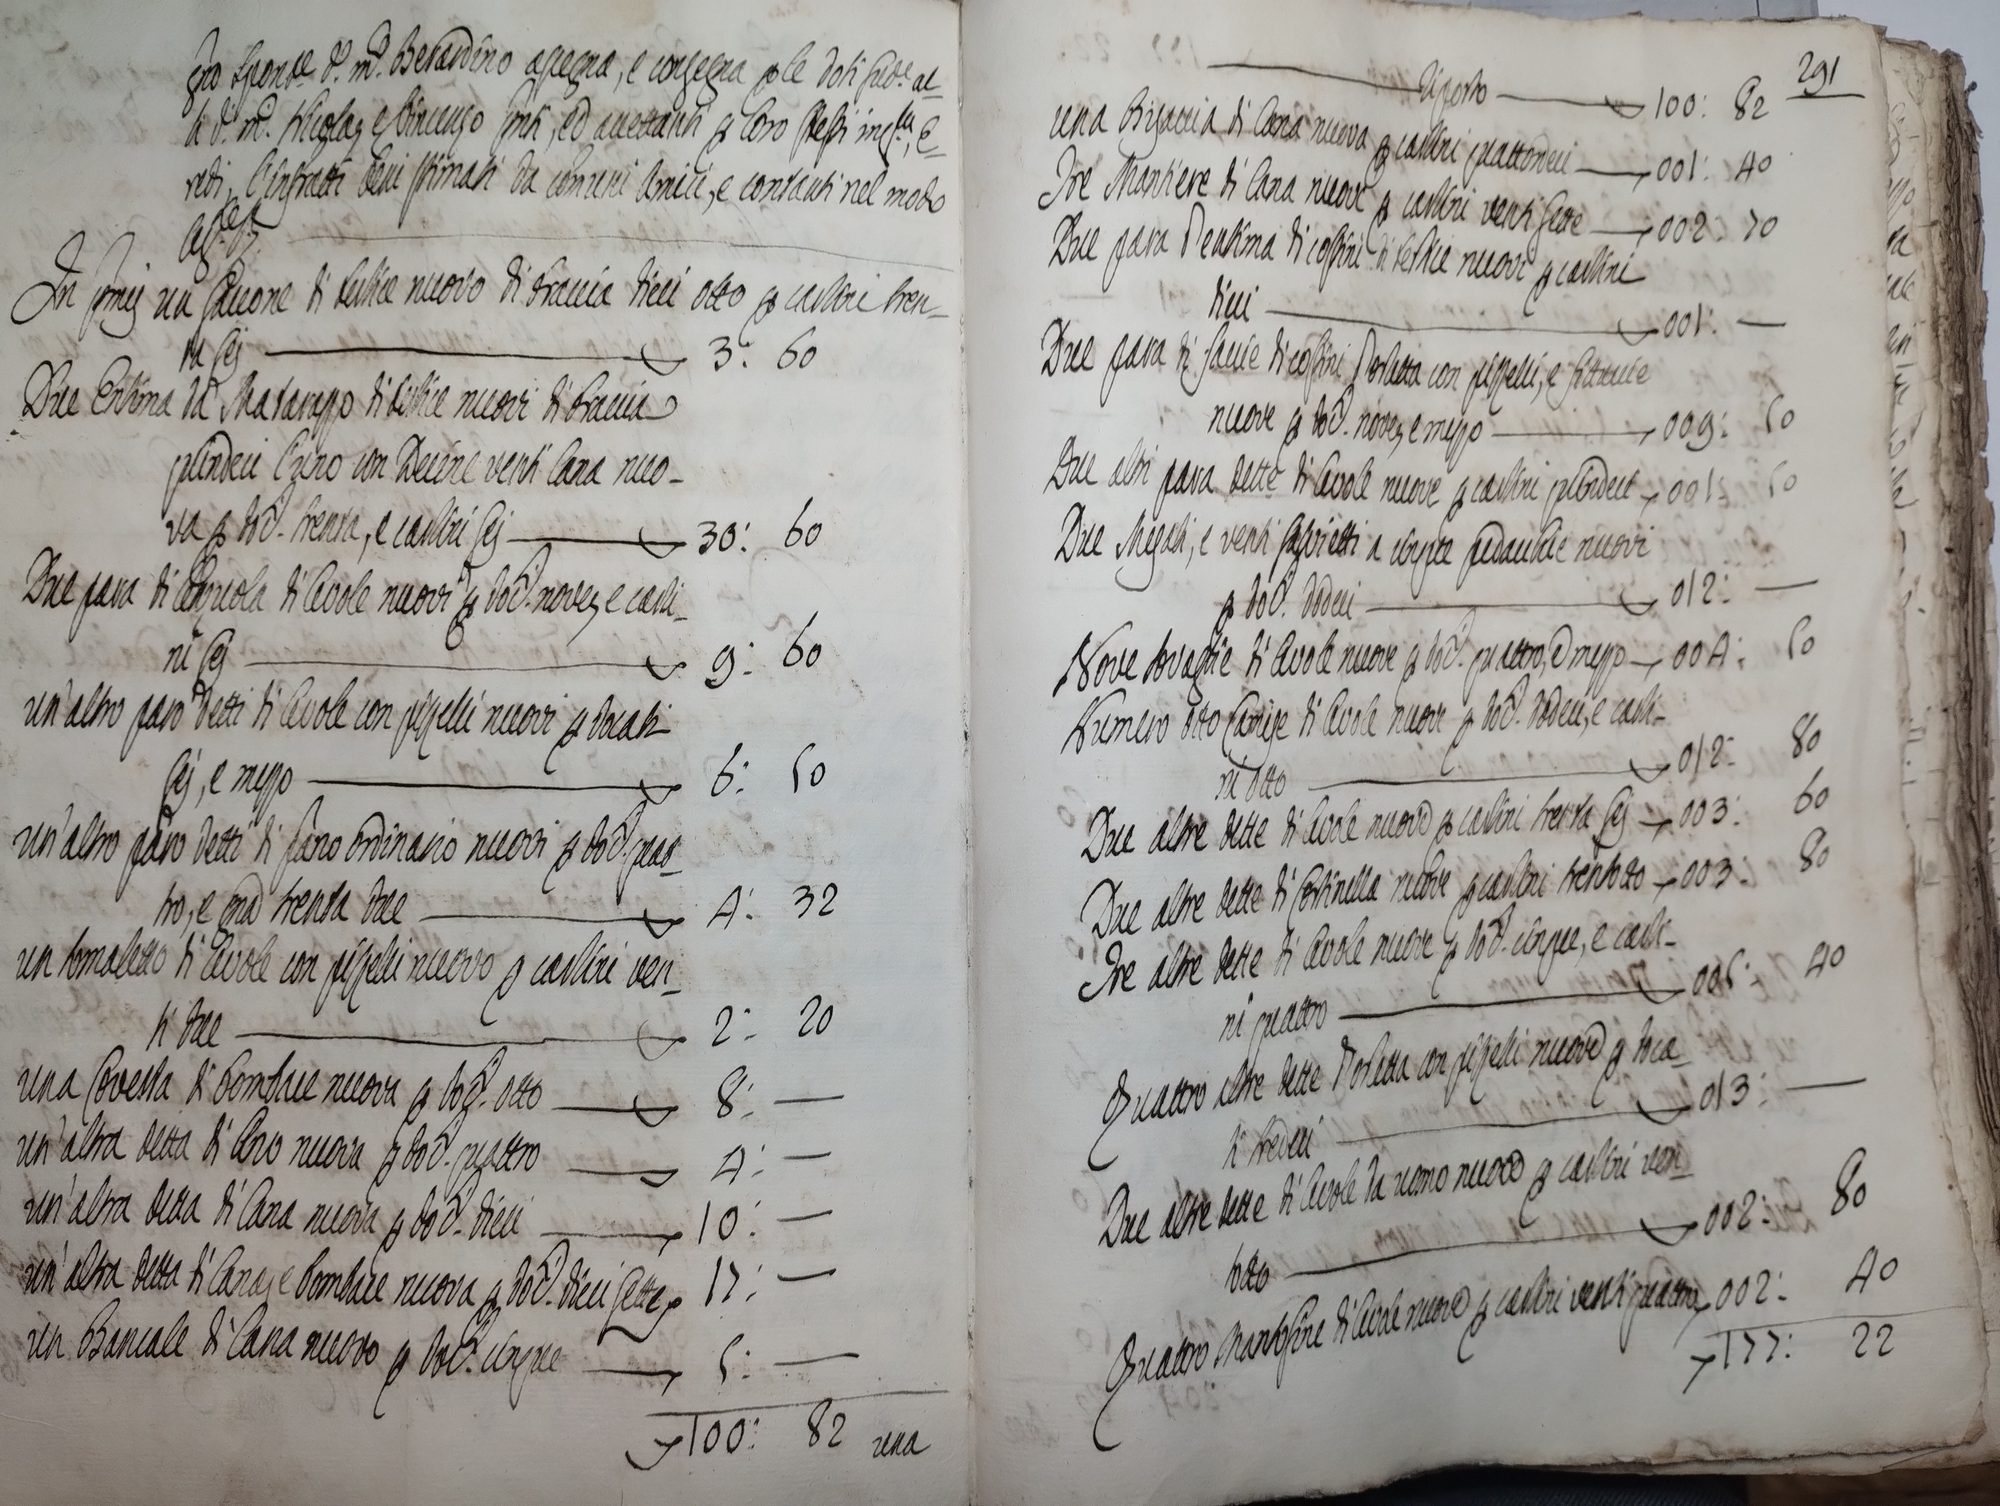 spont.e d.o m.o Berardino assegna, e consegna p le doti sud.e al-
li d.i m.o Nicola, e Vincenzo ed p loro stessi E-
redi, l'infratti beni stimati da comuni Amici, e contanti nel modo
In p[ri]mis un saccone di terlice nuovo di braccia dieci otto p carlini tren-
ta sej 3: 60
Due di terlice nuovi di braccia
quindeci l'uno con Decine venti lana nuo-
va p doc. trenta, e carlini sej 30: 60
Due para di lenzuola di tivole nuovi p doc. nove, e carli-
ni sej 9: 60
un'altro paro detti di tivole con pizzelli nuovi p docati
sej, e mezzo 6: 50
un'altro paro detti di pano ordinario nuovi p doc. quat-
tro, e gna trenta due 4: 32
un tornaletto di tivole con pizzelli nuovo p carlini ven-
ti due 2: 20
una Coverta di bombace nuova p doc. otto 8: —
un'altra detta di lino nuova p doc. quattro 4: —
un'altra detta di lana nuova p doc. dieci 10: —
un'altra detta di lana, e bombace nuova p doc. dieci sette 17: —
un Bancale di lana nuovo p doc. cinque 5: —
100: 82 una
291
Riporto 100: 82
una Bisaccia di lana nuova p carlini quattordeci 001: 40
Tre Mantere di lana nuove p carlini venti sette 002: 70
Due para d'entima di coscini di terlice nuovi p carlini
dieci 001: —
Due para di facce di coscini d'orletta con pizzelli, e fittuccie
nuove p doc. nove, e mezzo 009: 50
Due altri para dette di tivole nuove p carlini quindeci 001: 50
Due Mesali, e venti salvietti a cinque nuovi
p doc. dodeci 012: —
Nove tovaglie di tivole nuove p doc. quattro, e mezzo 004: 50
Numero otto Camise di tivole nuove p doc. dodeci, e carli-
ni otto 012: 80
Due altre dette di tivole nuove p carlini trenta sej 003: 60
Due altre dette di nuove p carlini trent'otto 003: 80
Tre altre dette di tivole nuove p doc. cinque, e carli-
ni quattro 005: 40
Quattro altre dette d'orletta con pizzelli nuove p doca-
ti tredeci 013: —
Due altre dette di tivole da uomo nuove p carlini ven-
totto 002: 80
Quattro Mantesine di tivole nuove p carlini venti quattro 002: 40
177: 22